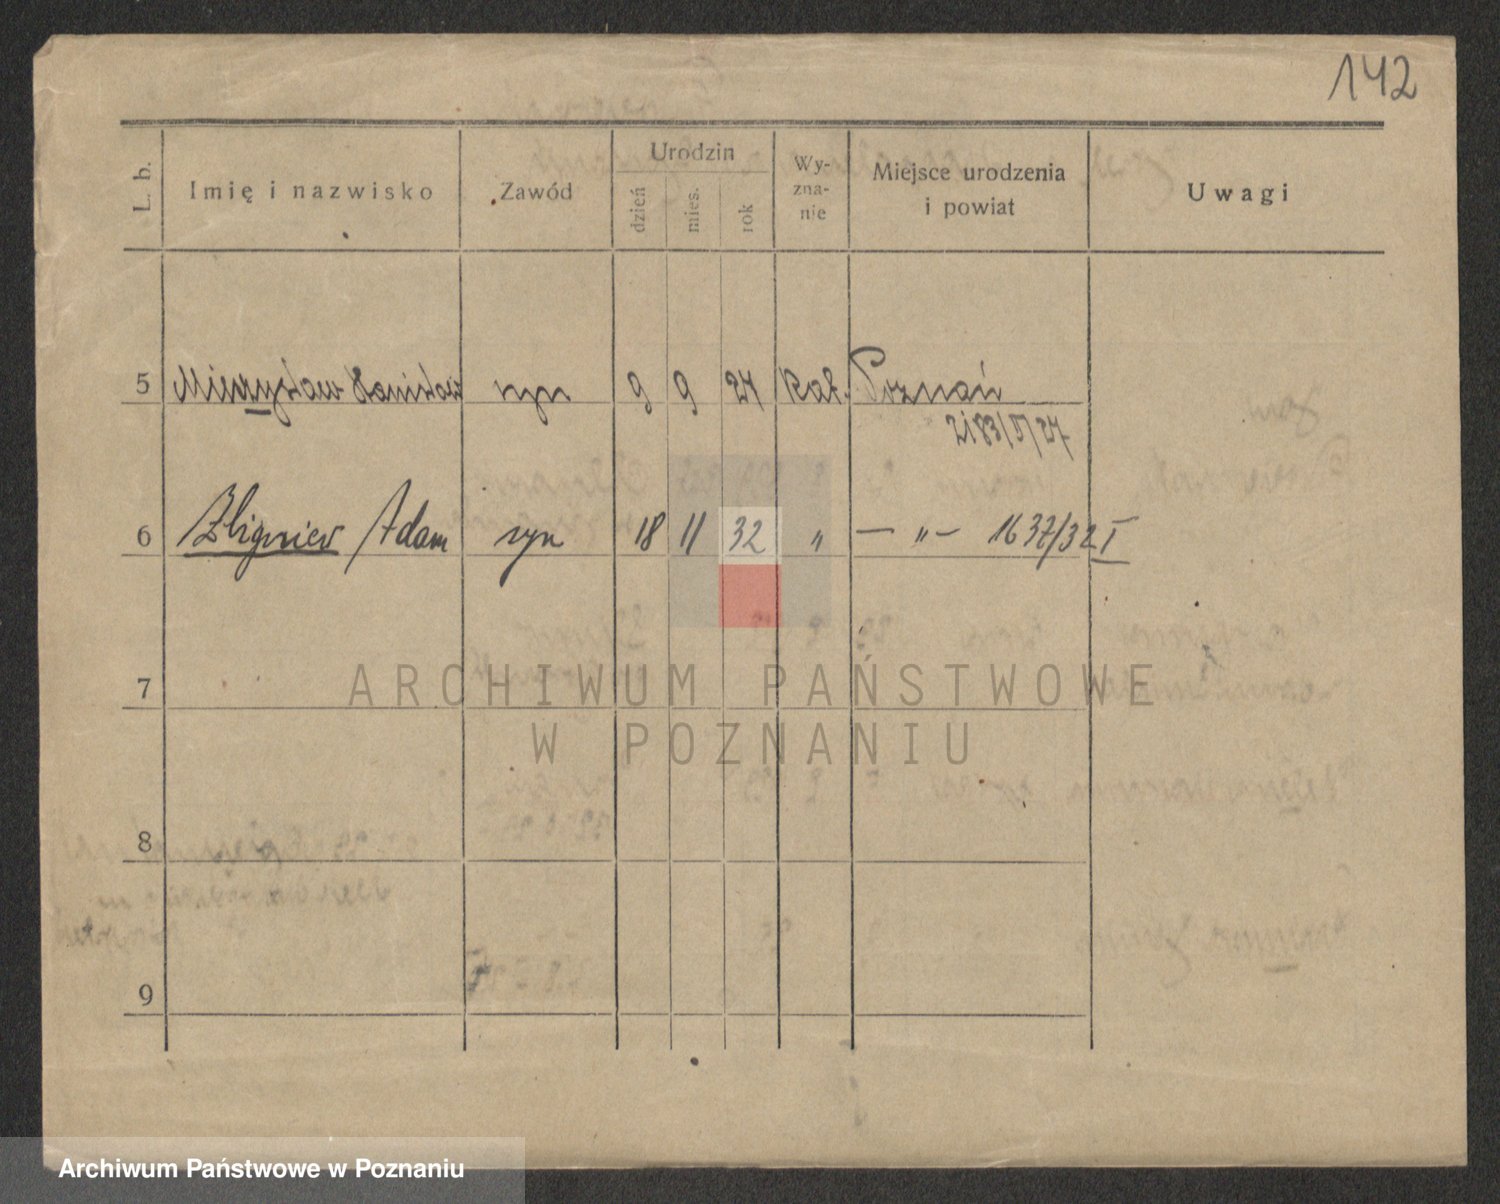 142
L. b. Imię i nazwisko Zawód Urodzin dzień mies. rok Wy-zna-nie Miejsce urodzenia i powiat Uwagi
5 Mieczysław Stanisław syn 9 9 27 Kat. Poznań
2183/V/27
6 Zbigniew Adam syn 18 11 32 „ — „ — 1637/32 I
7
ARCHIWUM PAŃSTWOWE
W POZNANIU
8
9
Archiwum Państwowe w Poznaniu